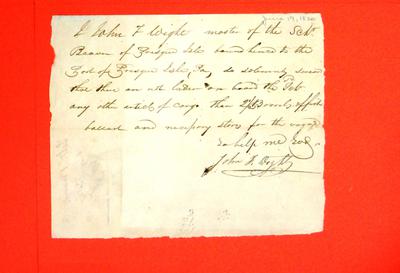 June 19, 1820
I John F Wight master of the Schr
Beaver of Presque Isle bound hence to the
Port of Presque Isle, Pa, do solemnly swear
that there are not laden on board the
any other articles of cargo than
ballast and necessary stores for the voyage
So help me God
John F.